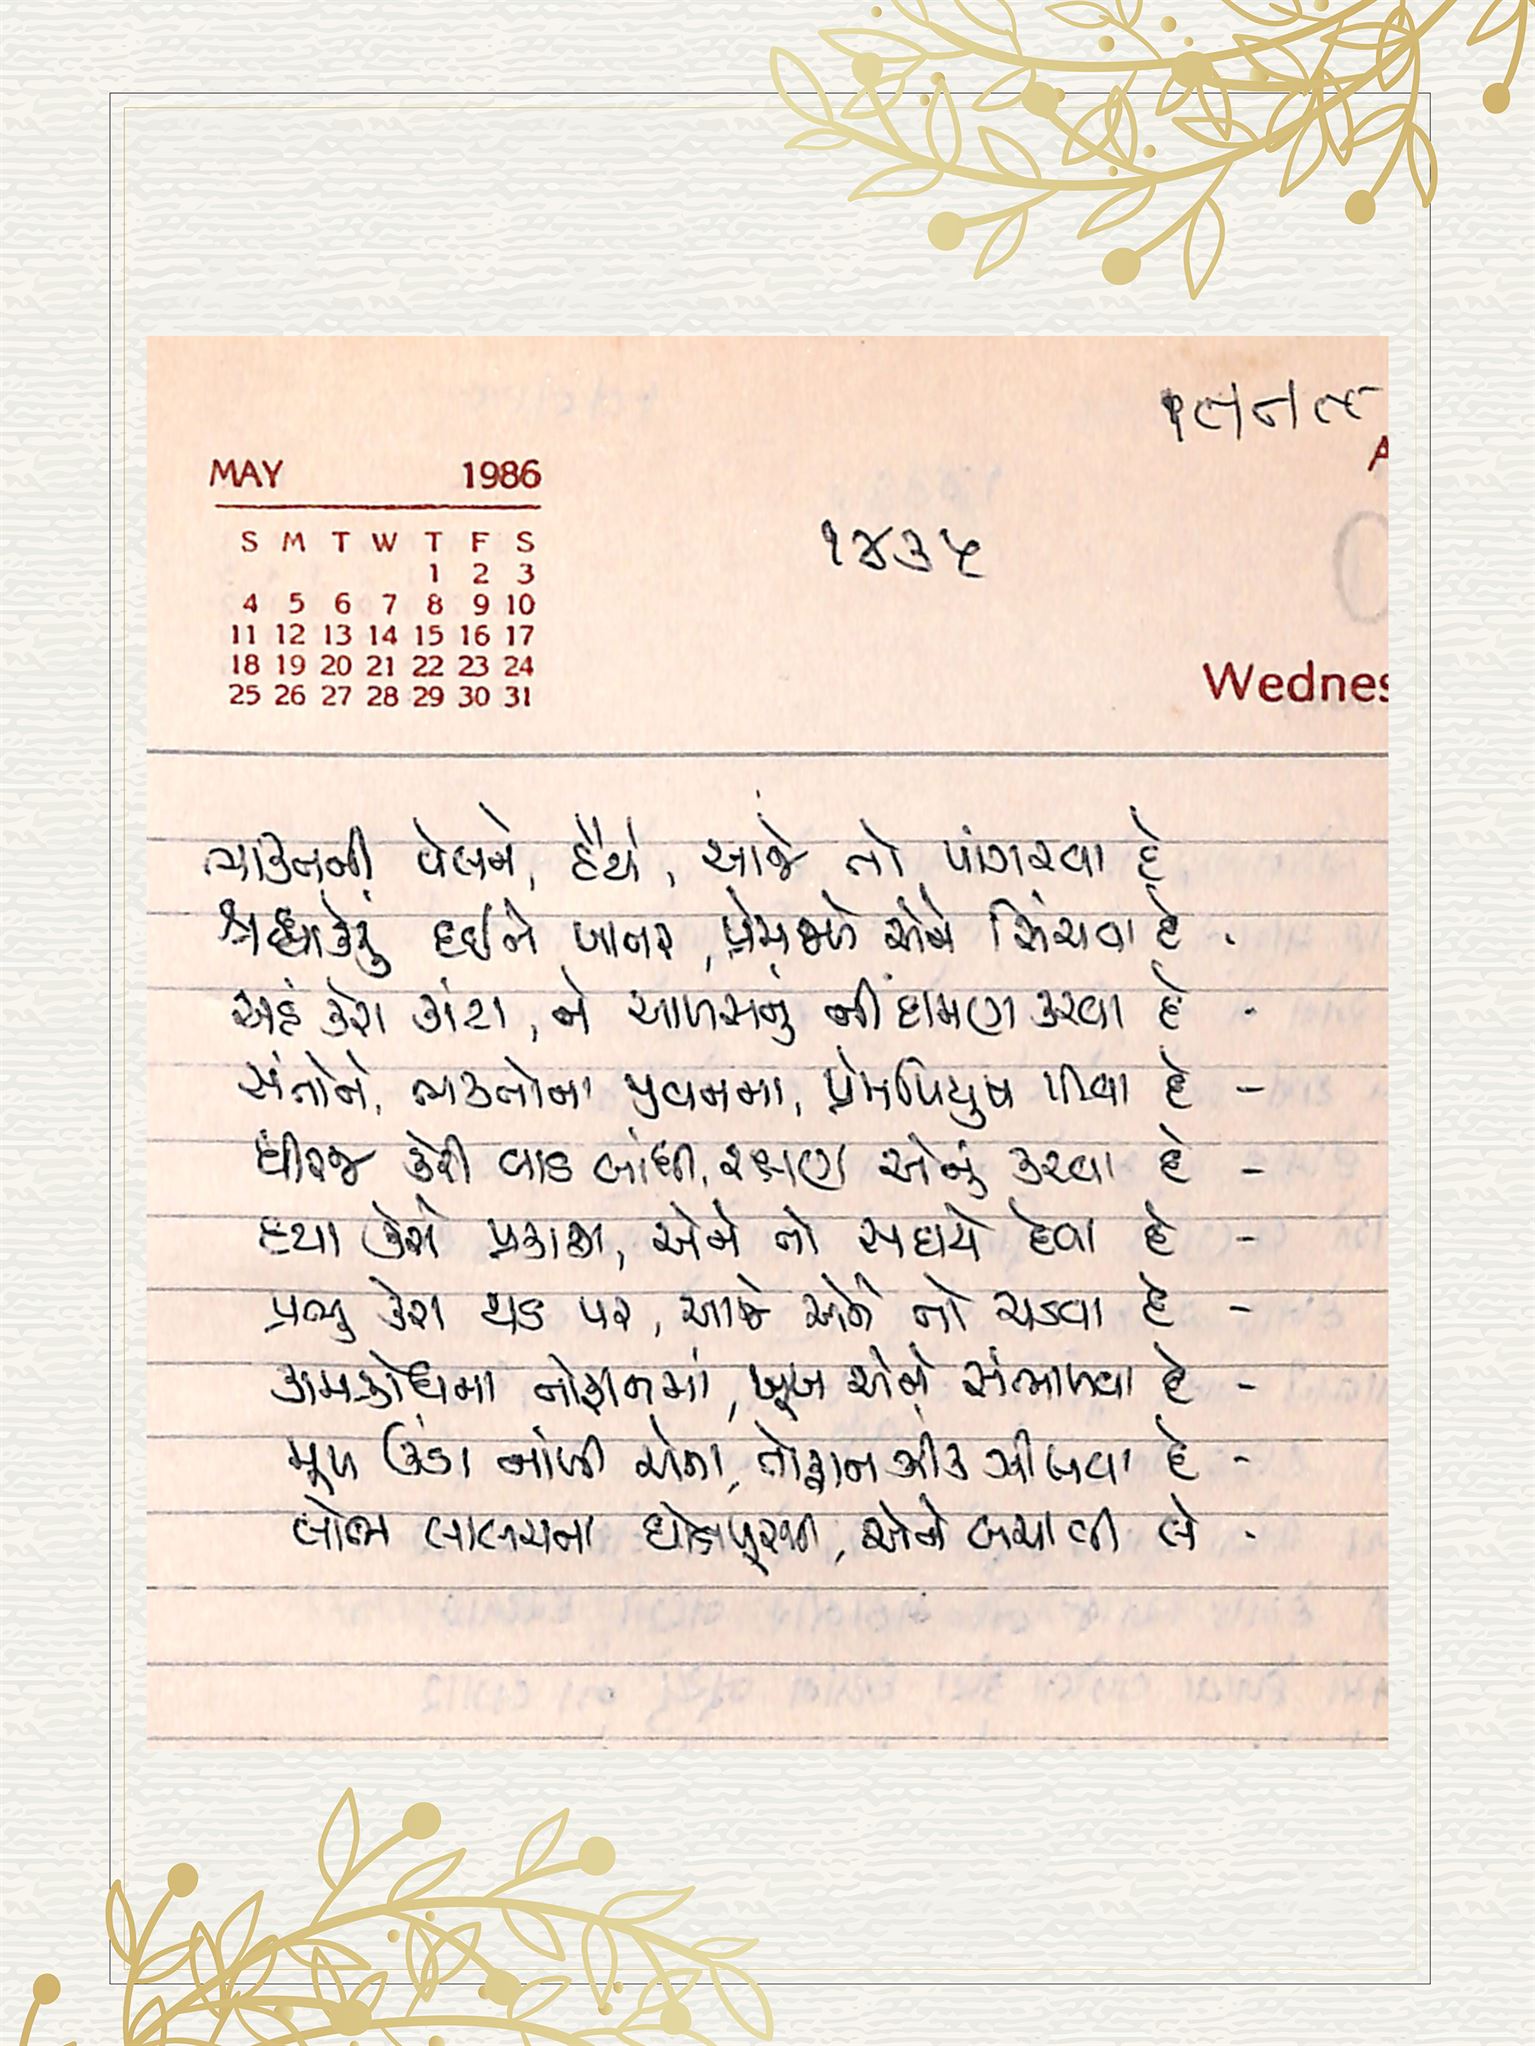 MAY 1986
S M T W T F S
1 2 3
4 5 6 7 8 9 10
11 12 13 14 15 16 17
18 19 20 21 22 23 24
25 26 27 28 29 30 31
૧૪૩૫
Wednes
ભક્તિની વેલને, હૈયે, આજે તો પાંગરવા દે
શ્રદ્ધાકેરું દઈને ખાતર, પ્રેમજળે એને સિંચવા દે .
અહં કેરા કાંટા, ને આળસનું નીંદામણ કરવા દે .
સંતોને, ભક્તોના પવનમા, પ્રેમપિયુષ પીવા દે -
ધીરજ કેરી વાડ બાંધી, રક્ષણ એનું કરવા દે -
દયા કેરો પ્રકાશ, એને તો સદાયે દેવા દે -
પ્રભુ કેરા થડ પર, આજે એને તો ચડવા દે -
કામક્રોધના તોફાનમાં, ખૂબ એને સંભાળવા દે -
મૂળ ઊંડા નાંખી એના, તોફાન ઝીંક ઝીલવા દે -
લોભ લાલચના ઘોડાપૂરથી, એને બચાવી લે .